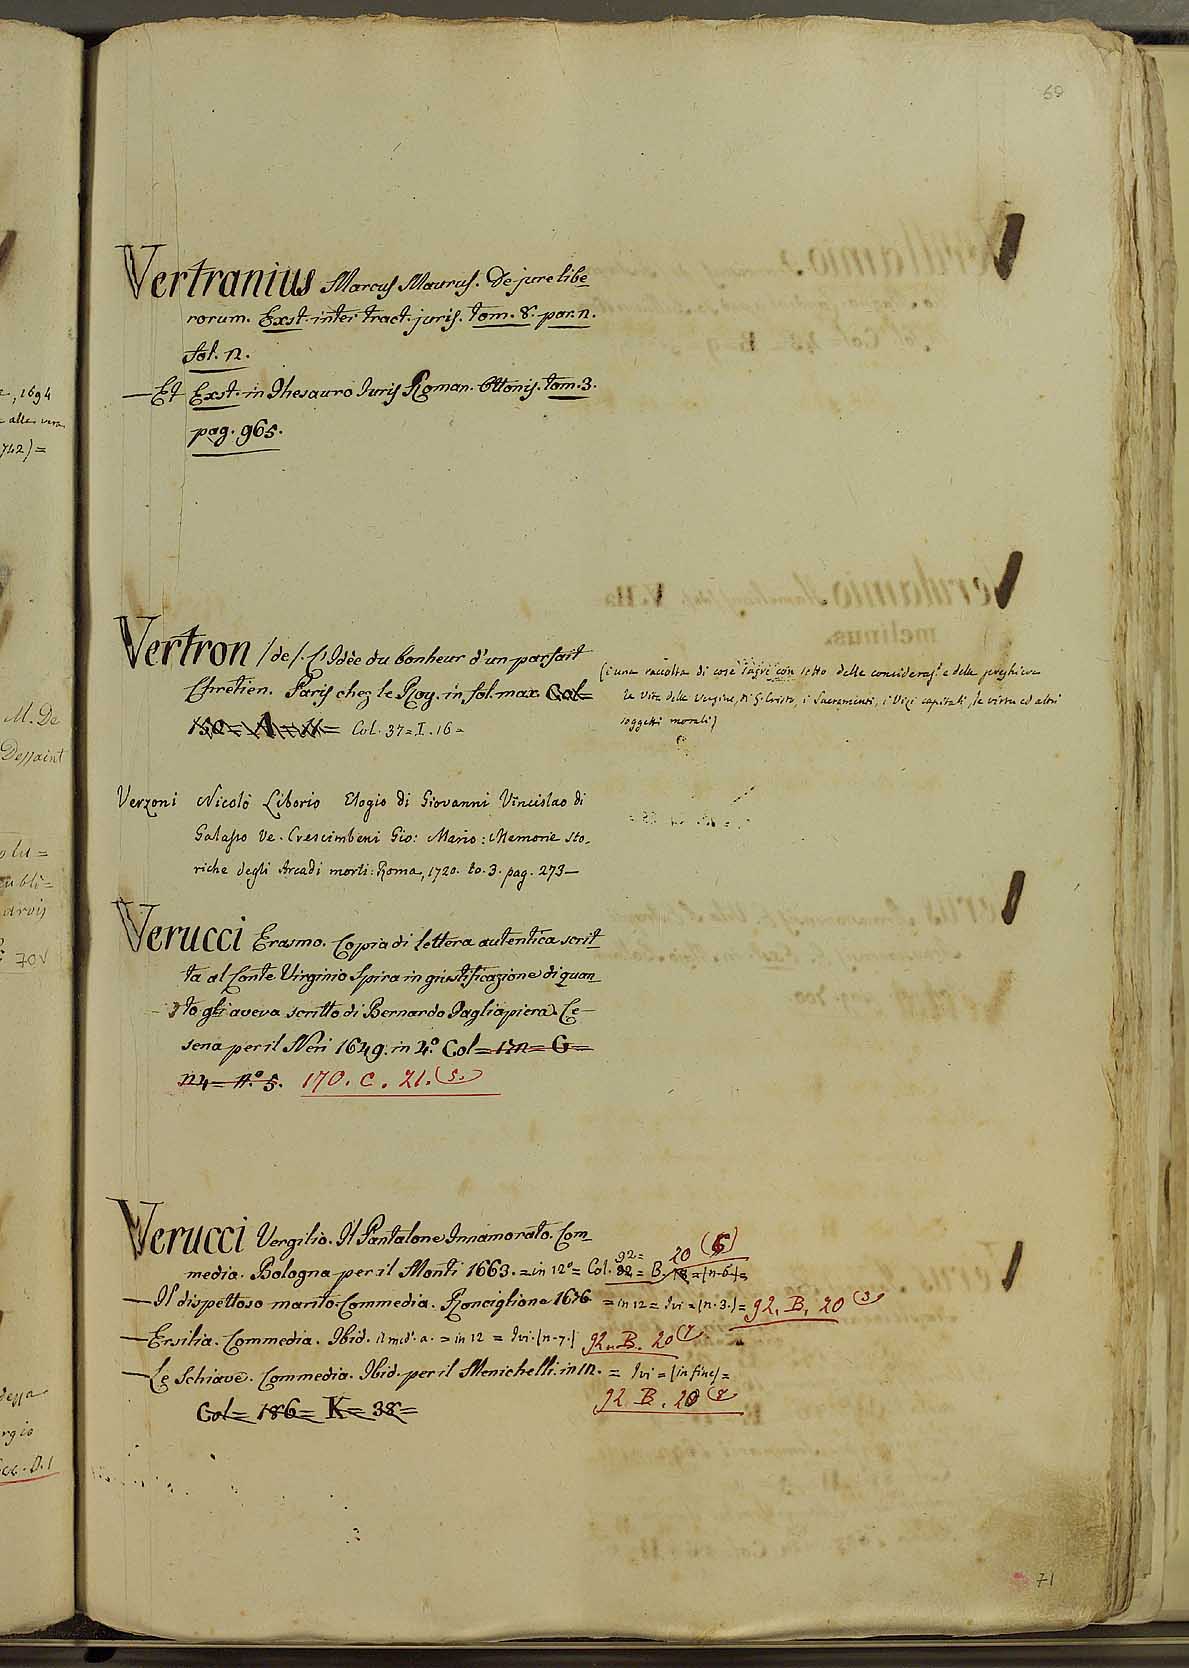 69
Vertranius Marcus Maurus. De jure libe_
rorum. Exst. inter tract. juris. tom. 8. par. n.
fol. n.
— Et Exst. in Thesauro Juris Roman. Ottonis. tom. 3.
pag. 965.
Vertron /de/. L'Idèe du bonheur d'un parfait
Chretien. Paris chez le Roy. in fol. max. Col=
150= A= 11= Col. 37= I. 16=
(è una raccolta di cose sagre con sotto delle consideraz.i e delle preghiere
la Vita della Vergine, di G. Cristo, i Sacramenti, i Vizi capitali, le virtù ed altri
soggetti morali)
Verzoni Nicolò Liborio Elogio di Giovanni Vincislao di
Galasso Ve. Crescimbeni Gio: Mario: Memorie sto.
riche degli Arcadi morti: Roma, 1720. to. 3. pag. 273—
Verucci Erasmo. Copia di lettera autentica scrit_
ta al Conte Virginio Spira in giustificazione di quan_
to gli aveva scritto di Bernardo Pagliapiera. Ce-
sena per il Neri 1649. in 4.º Col= 12n= G=
n4= n.º 5. 170. C. 21. (5.)
Verucci Vergilio. Il Pantalone Innamorato. Com_
media. Bologna per il Monti 1663. = in 12º = Col. 82 = B. 18 = (n. 6.)=
92= 20 (6)
— Il dispettoso marito. Commedia. Ronciglione 1676 = in 12 = Ivi = (n. 3.) = 92. B. 20 (3)
— Ersilia. Commedia. Ibid. il med.º a. = in 12 = Ivi. (n. 7.) 92. B. 20 (7)
— Le Schiave. Commedia. Ibid. per il Menichelli. in 12. = Ivi = (in fine) =
92. B. 20 (8)
Col= 186= K= 38=
71